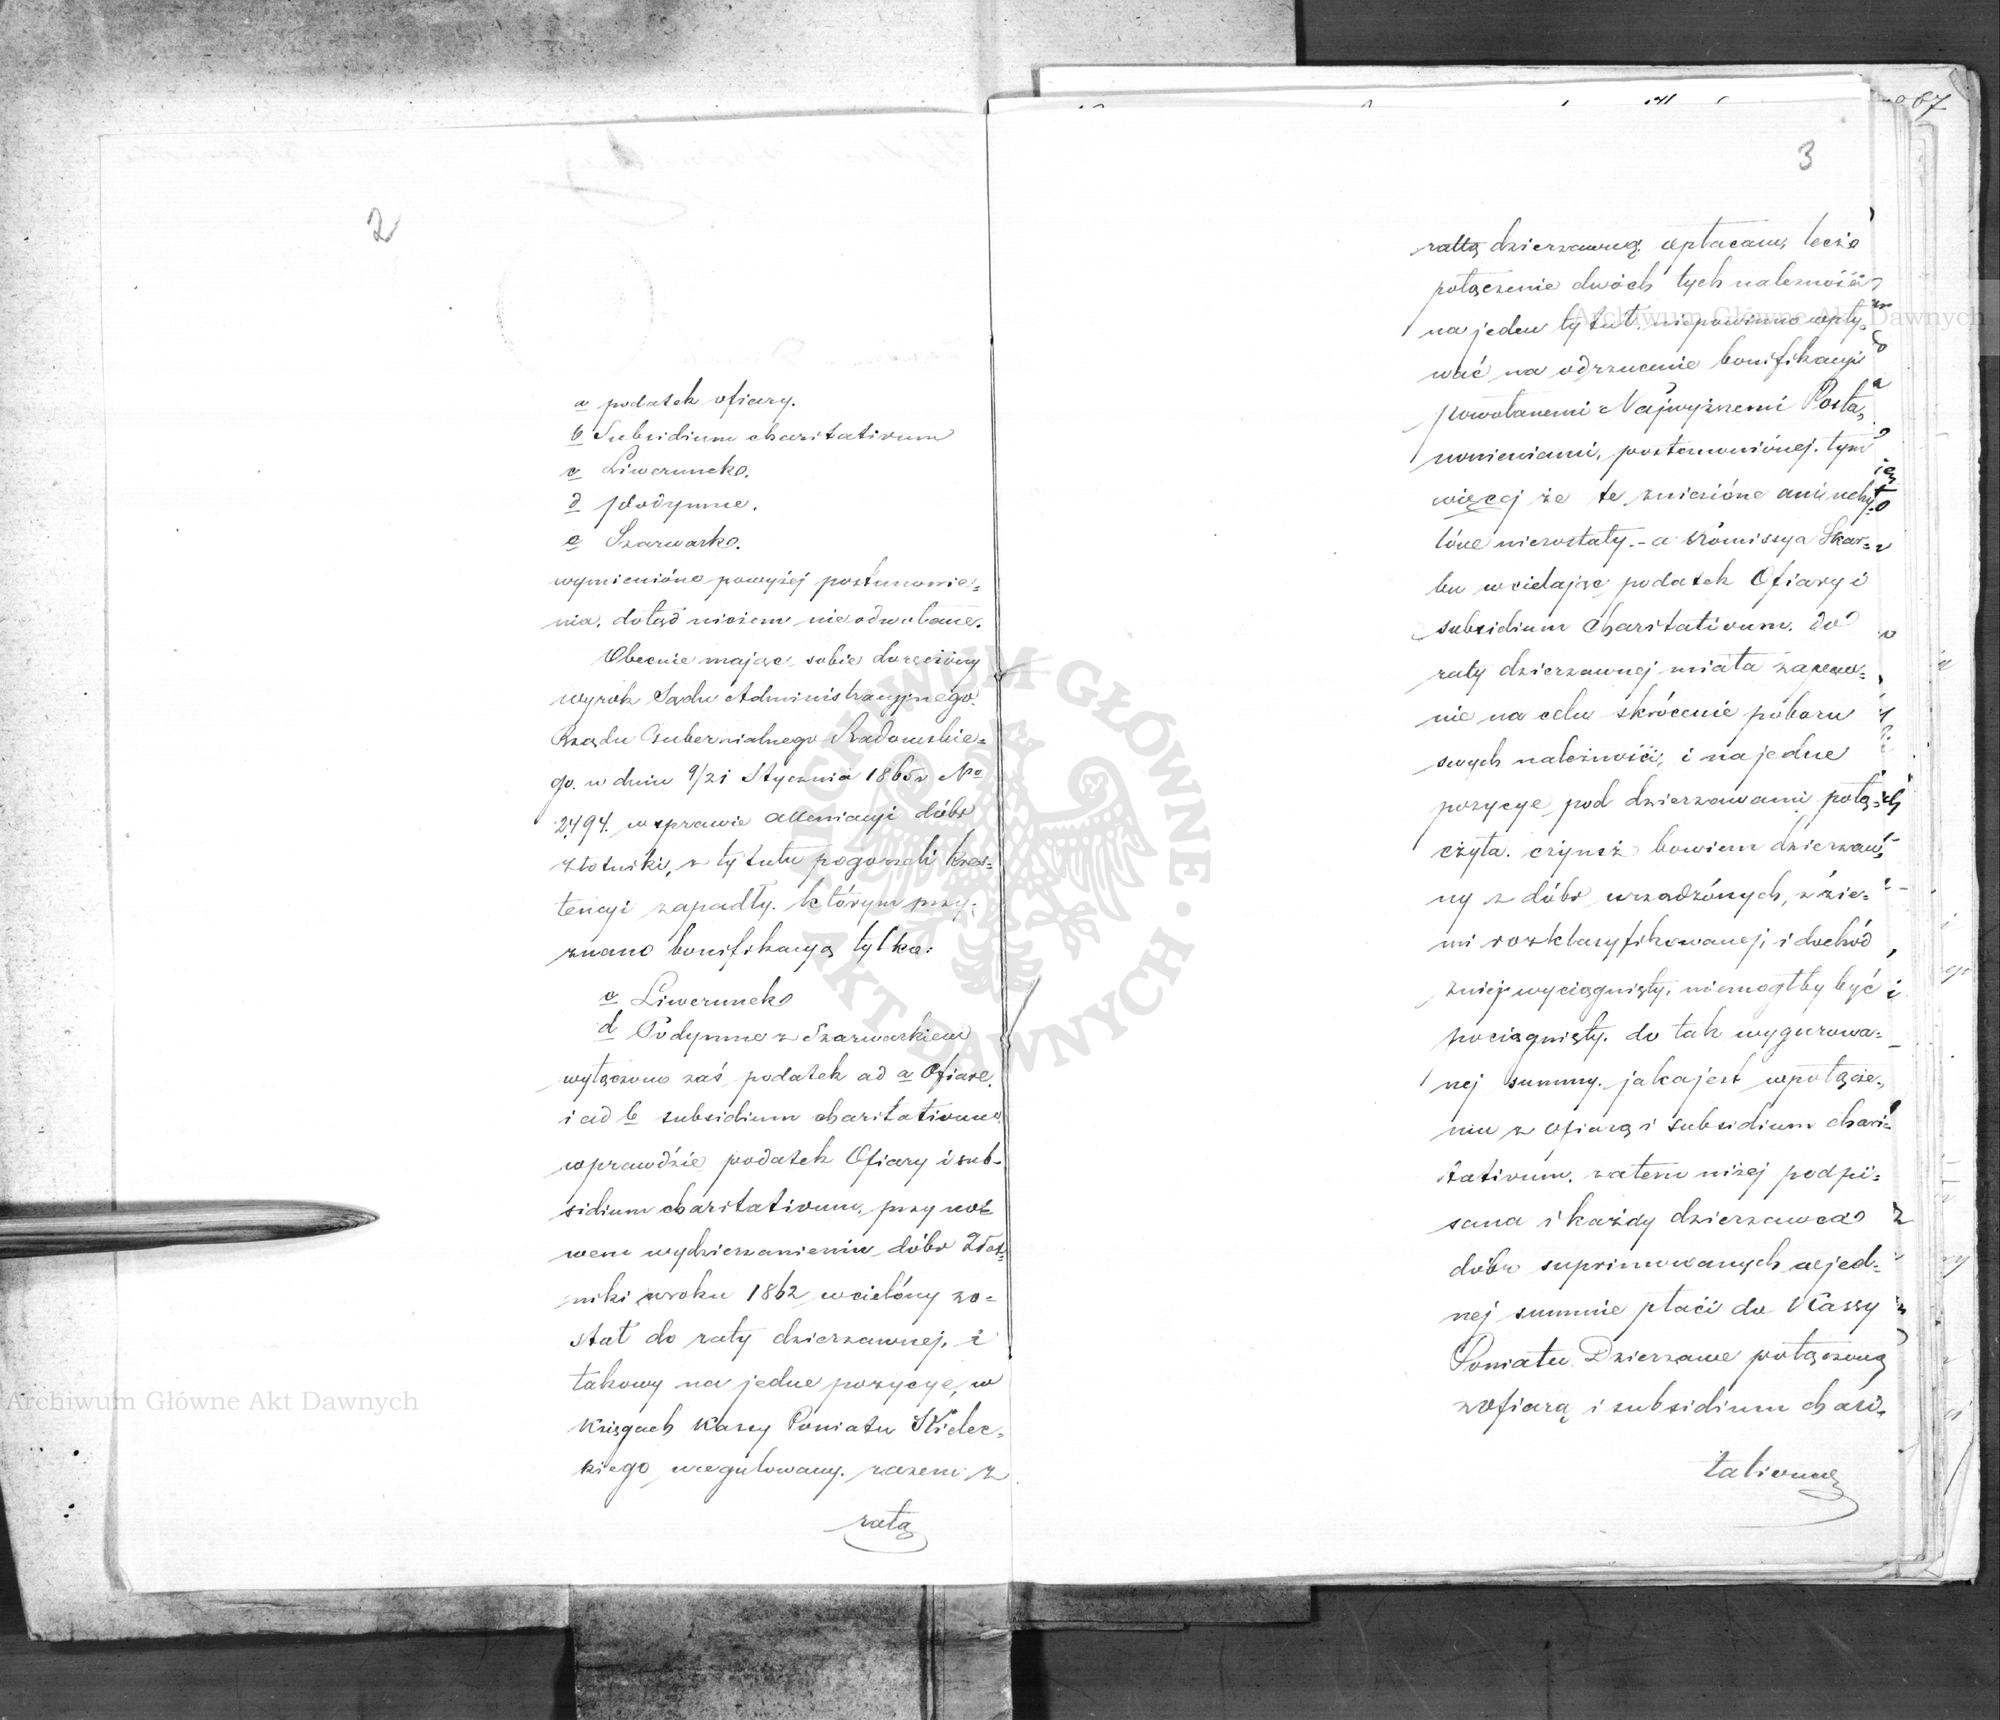 2
a podatek ofiary.
b Subsidium charitativum
c Liwerunek.
d podymne.
e Szarwark.
wymienione powyżej postanowie=
nia, dotąd niczem nieodwołane.
Obecnie mając sobie doręczony
wyrok Sądu Administracyjnego
Rządu Gubernialnego Radomskie=
go. w dniu 9/21 Stycznia 1865 r No
2494. w sprawie allewiacyi dóbr
Złotniki, z tytułu pogorzeli kres=
tencyi zapadły. którym przy=
znano bonifikacyą tylko:
c Liwerunek
d Podymne z Szarwarkiem
wyłączono zaś podatek ad a Ofiarę
i ad b subsidium charitativum
wprawdzie podatek Ofiary i sub=
sidium charitativum, przy no=
wem wydzierżawieniu dóbr Złot=
niki w roku 1862 wcielony zo=
stał do raty dzierżawnej, i
takowy na jedne pozycye, w
Księgach Kassy Powiatu Kielec=
kiego uregulowany. razem z
ratą
67
3
rattą dzierżawną wpłacam, lecz
połączenie dwóch tych należności
na jeden tytuł, niepowinno wpły=
wać na odrzucenie bonifikacyi
powołanemi Najwyższemi Posta=
nowieniami, postanowionej. tym
więcej że te zniesione ani uchy=
lone niezostały. - a Kómissya Skar=
bu wcielając podatek Ofiary i
subsidium Charitativum. do
raty dzierżawnej miała zapew=
nie na celu skrócenie poboru
swych należności, i na jedne
pozycye pod dzierżawami połą=
czyła. czynsz bowiem dzierżaw=
ny z dóbr urządzónych, z zie=
mi rozklasyfikowanej, i dochód
z niej wyciągnięty, niemogłby być
pociągnięty. do tak wygurowa=
nej summy. jaka jest w połącze=
niu z ofiarą i subsidium chari=
tativum. zatem niżej podpi=
sana i każdy dzierżawca
dóbr suprimowanych w jed=
nej summie płaci do Kassy
Powiatu Dzierżawe połączoną
z ofiarą i subsidium chari=
tativum
Archiwum Główne Akt Dawnych
Archiwum Główne Akt Dawnych
ARCHIWUM GŁÓWNE • AKT DAWNYCH •